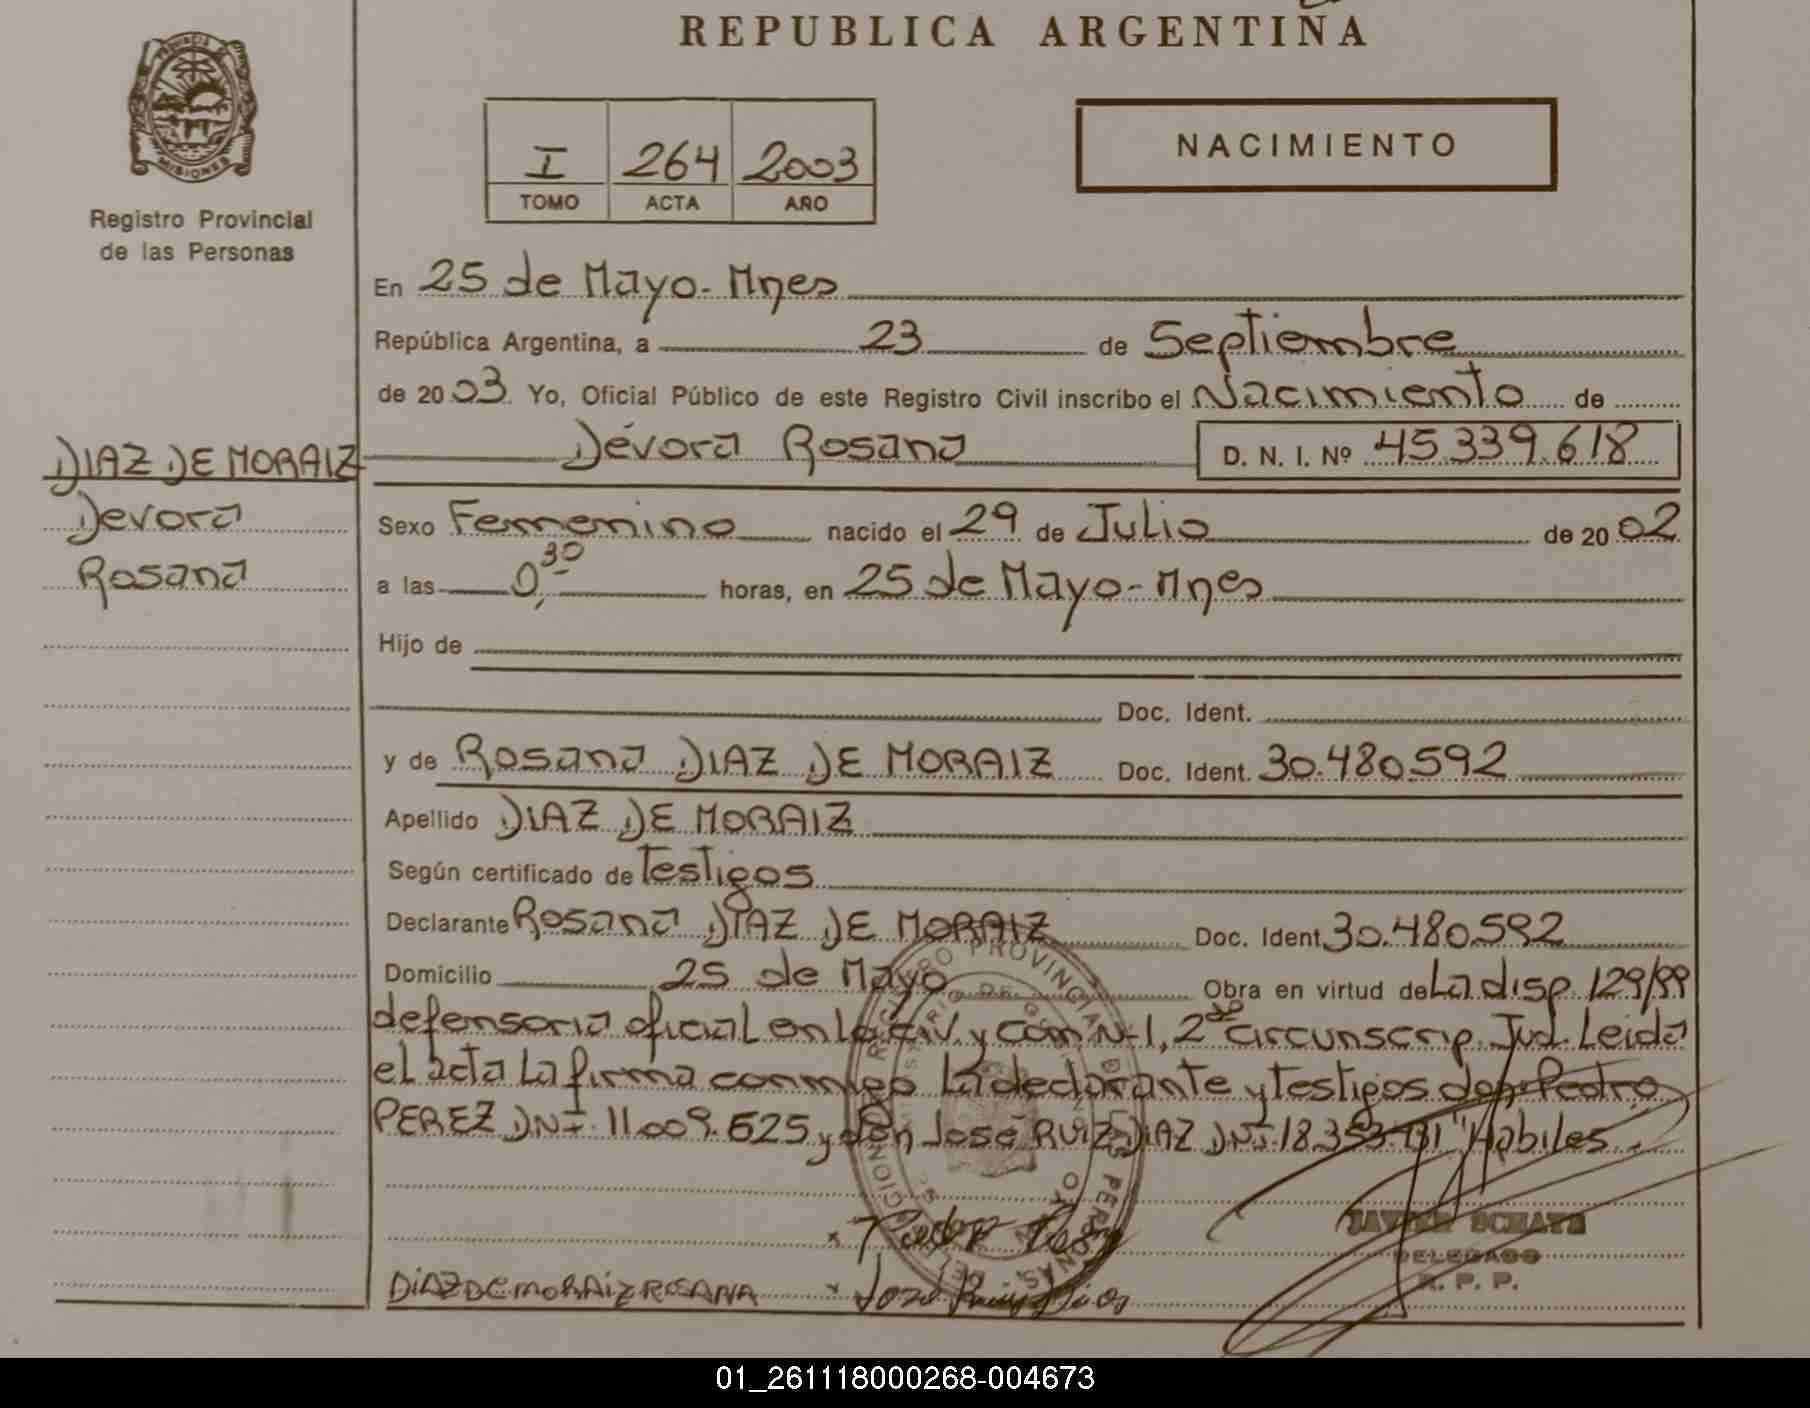 REPUBLICA ARGENTINA
PROVINCIA DE
MISIONES
Registro Provincial
de las Personas
I 264 2003
TOMO ACTA AÑO
NACIMIENTO
En 25 de Mayo - Mnes
República Argentina, a 23 de Septiembre
de 2003 Yo, Oficial Público de este Registro Civil inscribo el Nacimiento de
DIAZ DE MORAIZ
Devora
Rosana
Dévora Rosana D. N. I. Nº 45.339.618
Sexo Femenino nacido el 29 de Julio de 2002
a las 0,30 horas, en 25 de Mayo - Mnes
Hijo de
Doc. Ident.
y de Rosana DIAZ DE MORAIZ Doc. Ident. 30.480.592
Apellido DIAZ DE MORAIZ
Según certificado de Testigos
Declarante Rosana DIAZ DE MORAIZ Doc. Ident 30.480.592
Domicilio 25 de Mayo Obra en virtud de La disp 129/99
defensoria oficial en lo Civ. y Com. N-1, 2da Circunscrip. Jud. Leida
el acta La firma conmigo la declarante y testigos don Pedro
PEREZ DNI 11.009.625 y don José RUIZ DIAZ DNI 18.353. "Habiles.
REGISTRO PROVINCIAL DE LAS PERSONAS
JAVIER
DELEGADO
R. P. P.
DIAZ DE MORAIZ ROSANA
01_261118000268-004673